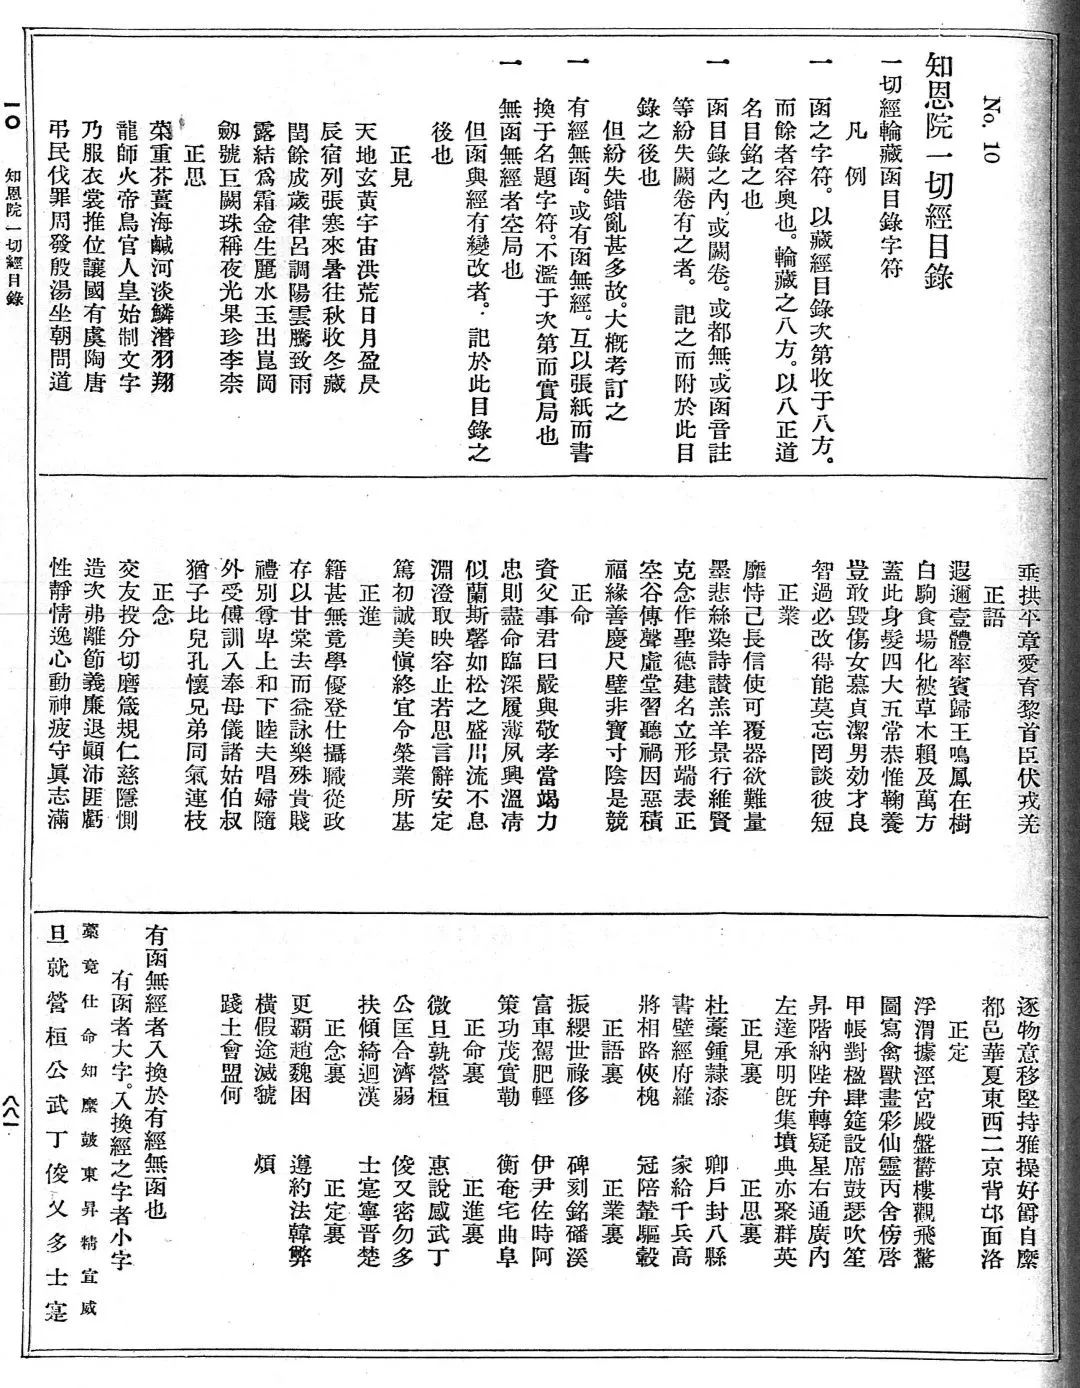 No. 10
知恩院一切經目錄
一切經輪藏函目錄字符
凡例
一 函之字符。以藏經目錄次第收于八方。
而餘者容奧也。輪藏之八方。以八正道
名目銘之也
一 函目錄之內。或闕卷。或都無。或函音註
等紛失闕卷有之者。記之而附於此目
錄之後也
但紛失錯亂甚多故。大概考訂之
一 有經無函。或有函無經。互以張紙而書
換于名題字符。不濫于次第而實局也
一 無函無經者空局也
但函與經有變改者。記於此目錄之
後也
正見
天地玄黃宇宙洪荒日月盈昃
辰宿列張寒來暑往秋收冬藏
閏餘成歲律呂調陽雲騰致雨
露結爲霜金生麗水玉出崑岡
劔號巨闕珠稱夜光果珍李柰
正思
菜重芥薑海鹹河淡鱗潛羽翔
龍師火帝鳥官人皇始制文字
乃服衣裳推位讓國有虞陶唐
弔民伐罪周發殷湯坐朝問道
垂拱平章愛育黎首臣伏戎羌
正語
遐邇壹體率賓歸王鳴鳳在樹
白駒食場化被草木賴及萬方
蓋此身髮四大五常恭惟鞠養
豈敢毀傷女慕貞潔男効才良
智過必改得能莫忘罔談彼短
正業
靡恃己長信使可覆器欲難量
墨悲絲染詩讃羔羊景行維賢
克念作聖德建名立形端表正
空谷傳聲虛堂習聽禍因惡積
福緣善慶尺璧非寶寸陰是競
正命
資父事君曰嚴與敬孝當竭力
忠則盡命臨深履薄夙興溫凊
似蘭斯馨如松之盛川流不息
淵澄取映容止若思言辭安定
篤初誠美愼終宜令榮業所基
正進
籍甚無竟學優登仕攝職從政
存以甘棠去而益詠樂殊貴賤
禮別尊卑上和下睦夫唱婦隨
外受傅訓入奉母儀諸姑伯叔
猶子比兒孔懷兄弟同氣連枝
正念
交友投分切磨箴規仁慈隱惻
造次弗離節義廉退顚沛匪虧
性靜情逸心動神疲守眞志滿
逐物意移堅持雅操好爵自縻
都邑華夏東西二京背邙面洛
正定
浮渭據涇宮殿盤欝樓觀飛驚
圖寫禽獸畫彩仙靈丙舍傍啓
甲帳對楹肆筵設席鼓瑟吹笙
昇階納陛弁轉疑星右通廣內
左達承明旣集墳典亦聚群英
正見裏 正思裏
杜藁鍾隷漆 卿戶封八縣
書壁經府羅 家給千兵高
將相路俠槐 冠陪輦驅轂
正語裏 正業裏
振纓世祿侈 碑刻銘磻溪
富車駕肥輕 伊尹佐時阿
策功茂實勒 衡奄宅曲阜
正命裏 正進裏
微旦孰營桓 惠說感武丁
公匡合濟弱 俊乂密勿多
扶傾綺迴漢 士寔寧晋楚
正念裏 正定裏
更覇趙魏困 遵約法韓弊
橫假途滅虢 煩
踐土會盟何
有函無經者入換於有經無函也
有函者大字。入換經之字者小字
藁竟仕命知縻皷東昇精宣威
旦就營桓公武丁俊乂多士寔
一〇 知恩院一切經目錄 八八一